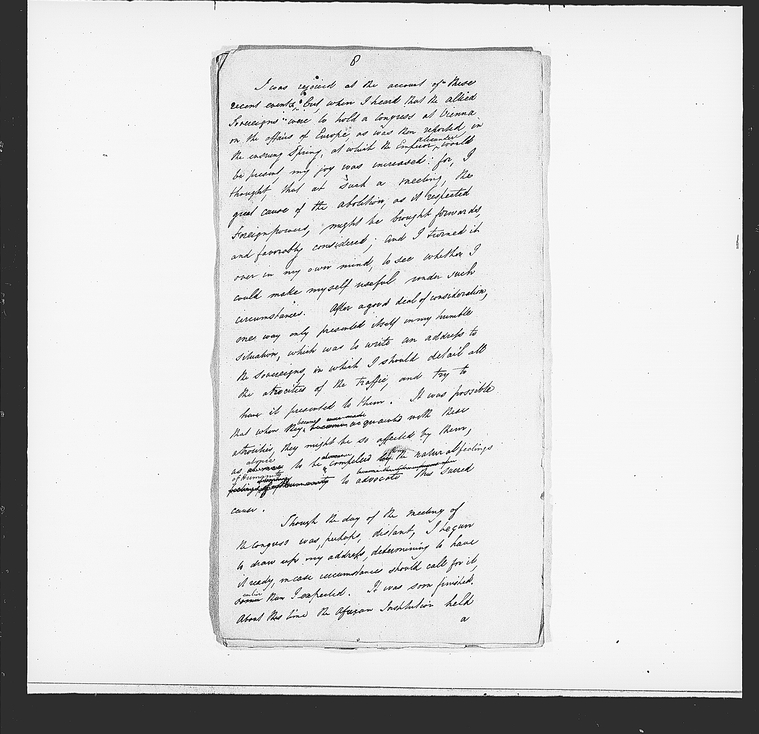 8
I was rejoiced at the account of these
recent events; but, when I heard that the allied
Sovereigns were to hold a congress at Vienna
on the affairs of Europe, as was then reported, in
the ensuing Spring, at which the Emperor Alexander would
be present, my joy was increased: for, I
thought, that at such a meeting, the
great cause of the abolition, as it respected
Foreign powers, might be brought forwards,
and favorably considered; and I turned it
over in my own mind, to see whether I
could make myself useful under such
circumstances. After a good deal of consideration,
one way only presented itself in my humble
situation, which was to write an address to
the Sovereigns, in which I should detail all
the atrocities of the traffic, and try to
have it presented to them. It was possible
that when they became acquainted with these
atrocities, they might be so affected by them,
as to be compelled by the natural feelings
of humanity to advocate this sacred
cause.
Though the day of the meeting of
the congress was, perhaps, distant, I began
to draw up my address, determining to have
it ready, in case circumstances should call for it,
earlier than I expected. It was soon finished.
About this time the African Institution held
a